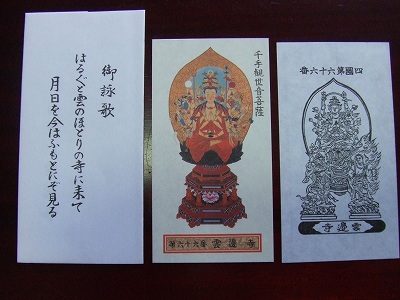 御詠歌
はるばると雲のほとりの寺に来て
月日を今はふもとにぞ見る
千手観世音菩薩
第六十六番 雲邊寺
四國第六十六番
寺邊雲